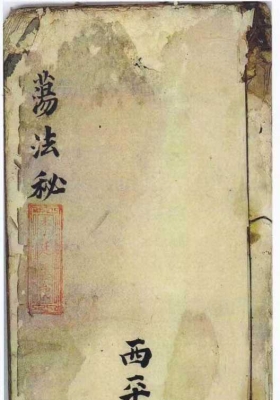 蕩法秘
西平